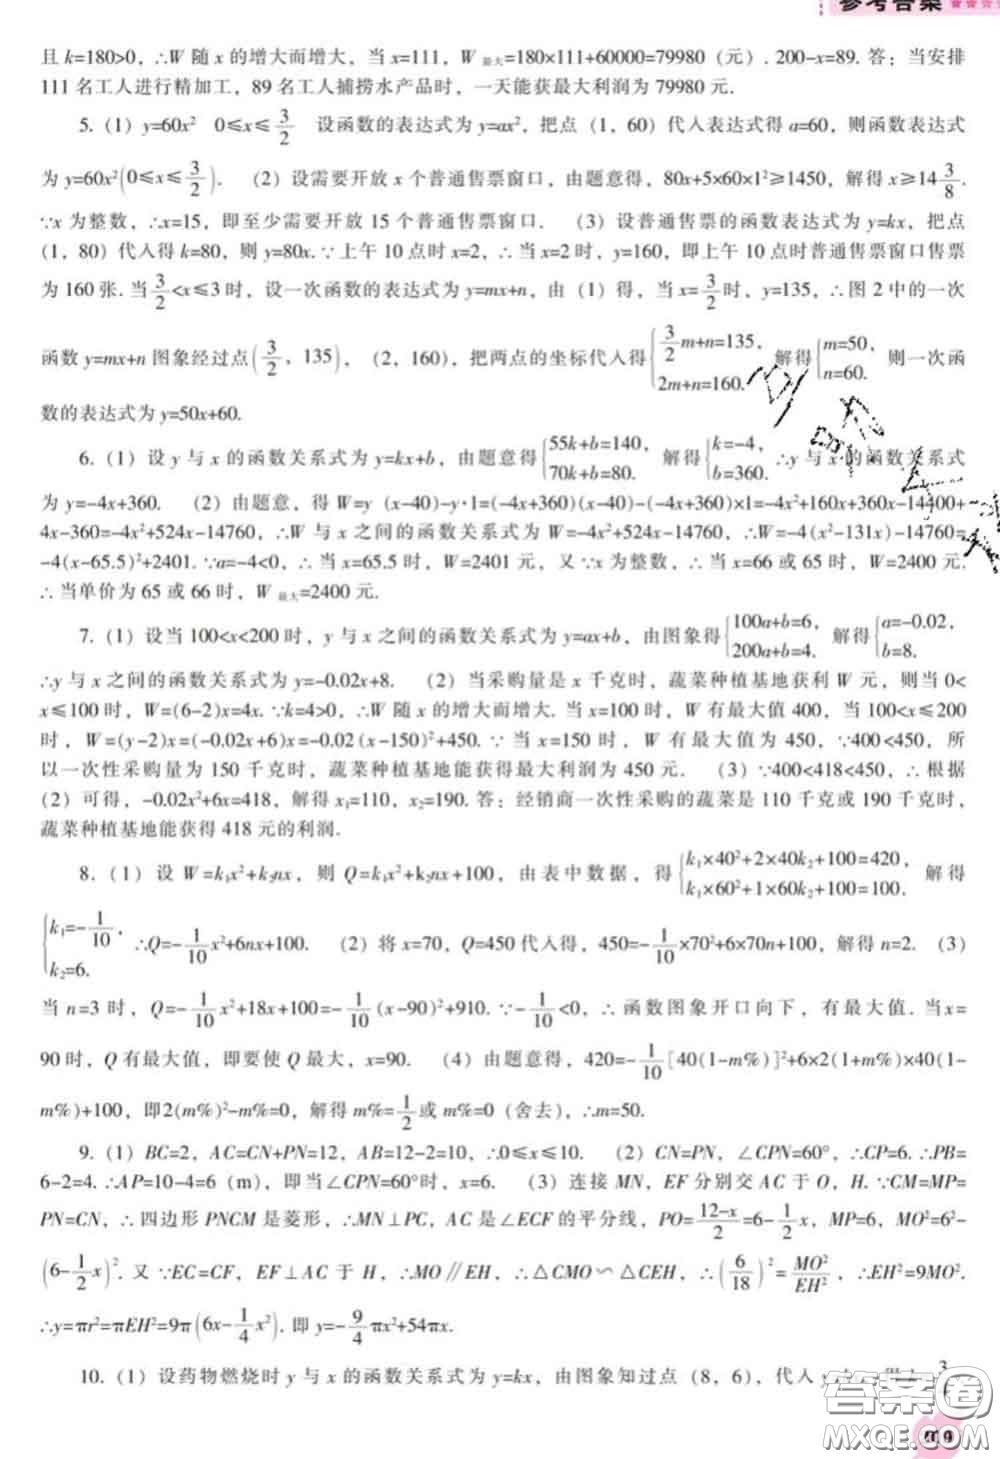 参考答案
且 k=180>0，∴W 随 x 的增大而增大，当 x=111，W 最大=180×111+60000=79980（元）. 200-x=89. 答：当安排
111 名工人进行精加工，89 名工人捕捞水产品时，一天能获最大利润为 79980 元.
5.（1）y=60x² 0≤x≤3/2 设函数的表达式为 y=ax²，把点（1，60）代入表达式得 a=60，则函数表达式
为 y=60x²(0≤x≤3/2). （2）设需要开放 x 个普通售票窗口，由题意得，80x+5×60×1²≥1450，解得 x≥14 3/8.
∵x 为整数，∴x=15，即至少需要开放 15 个普通售票窗口. （3）设普通售票的函数表达式为 y=kx，把点
（1，80）代入得 k=80，则 y=80x.∵上午 10 点时 x=2，∴当 x=2 时，y=160，即上午 10 点时普通售票窗口售票
为 160 张. 当 3/2<x≤3 时，设一次函数的表达式为 y=mx+n，由（1）得，当 x=3/2 时，y=135，∴图 2 中的一次
函数 y=mx+n 图象经过点(3/2，135)，（2，160），把两点的坐标代入得{3/2 m+n=135，2m+n=160. 解得{m=50，n=60. 则一次函
数的表达式为 y=50x+60.
6.（1）设 y 与 x 的函数关系式为 y=kx+b，由题意得{55k+b=140，70k+b=80. 解得{k=-4，b=360. ∴y 与 x 的函数关系式
为 y=-4x+360. （2）由题意，得 W=y（x-40）-y·1=(-4x+360)(x-40)-(-4x+360)×1=-4x²+160x+360x-14400+
4x-360=-4x²+524x-14760，∴W 与 x 之间的函数关系式为 W=-4x²+524x-14760，∴W=-4(x²-131x)-14760=
-4(x-65.5)²+2401.∵a=-4<0，∴当 x=65.5 时，W=2401 元，又∵x 为整数，∴当 x=66 或 65 时，W=2400 元.
∴当单价为 65 或 66 时，W 最大=2400 元.
7.（1）设当 100<x<200 时，y 与 x 之间的函数关系式为 y=ax+b，由图象得{100a+b=6，200a+b=4. 解得{a=-0.02，b=8.
∴y 与 x 之间的函数关系式为 y=-0.02x+8. （2）当采购量是 x 千克时，蔬菜种植基地获利 W 元，则当 0<
x≤100 时，W=(6-2)x=4x.∵k=4>0，∴W 随 x 的增大而增大. 当 x=100 时，W 有最大值 400，当 100<x≤200
时，W=(y-2)x=(-0.02x+6)x=-0.02(x-150)²+450.∵当 x=150 时，W 有最大值为 450，∵400<450，所
以一次性采购量为 150 千克时，蔬菜种植基地能获得最大利润为 450 元. （3）∵400<418<450，∴根据
（2）可得，-0.02x²+6x=418，解得 x₁=110，x₂=190. 答：经销商一次性采购的蔬菜是 110 千克或 190 千克时，
蔬菜种植基地能获得 418 元的利润.
8.（1）设 W=k₁x²+k₂nx，则 Q=k₁x²+k₂nx+100，由表中数据，得{k₁×40²+2×40k₂+100=420，k₁×60²+1×60k₂+100=100. 解得
{k₁=-1/10，k₂=6. ∴Q=-1/10x²+6nx+100. （2）将 x=70，Q=450 代入得，450=-1/10×70²+6×70n+100，解得 n=2. （3）
当 n=3 时，Q=-1/10x²+18x+100=-1/10(x-90)²+910.∵-1/10<0，∴函数图象开口向下，有最大值. 当 x=
90 时，Q 有最大值，即要使 Q 最大，x=90. （4）由题意得，420=-1/10[40(1-m%)]²+6×2(1+m%)×40(1-
m%)+100，即2(m%)²-m%=0，解得 m%=1/2 或 m%=0（舍去），∴m=50.
9.（1）BC=2，AC=CN+PN=12，AB=12-2=10，∴0≤x≤10. （2）CN=PN，∠CPN=60°，∴CP=6.∴PB=
6-2=4.∴AP=10-4=6（m），即当∠CPN=60°时，x=6. （3）连接 MN，EF 分别交 AC 于 O，H.∵CM=MP=
PN=CN，∴四边形 PNCM 是菱形，∴MN⊥PC，AC 是∠ECF 的平分线，PO=12-x/2=6-1/2x，MP=6，MO²=6²-
(6-1/2x)². 又∵EC=CF，EF⊥AC 于 H，∴MO∥EH，∴△CMO∽△CEH，∴(6/18)²=MO²/EH²，∴EH²=9MO².
∴y=πr²=πEH²=9π(6x-1/4x²). 即 y=-9/4πx²+54πx.
10.（1）设药物燃烧时 y 与 x 的函数关系式为 y=kx，由图象知过点（8，6），代入
答案卷
MXQE.COM